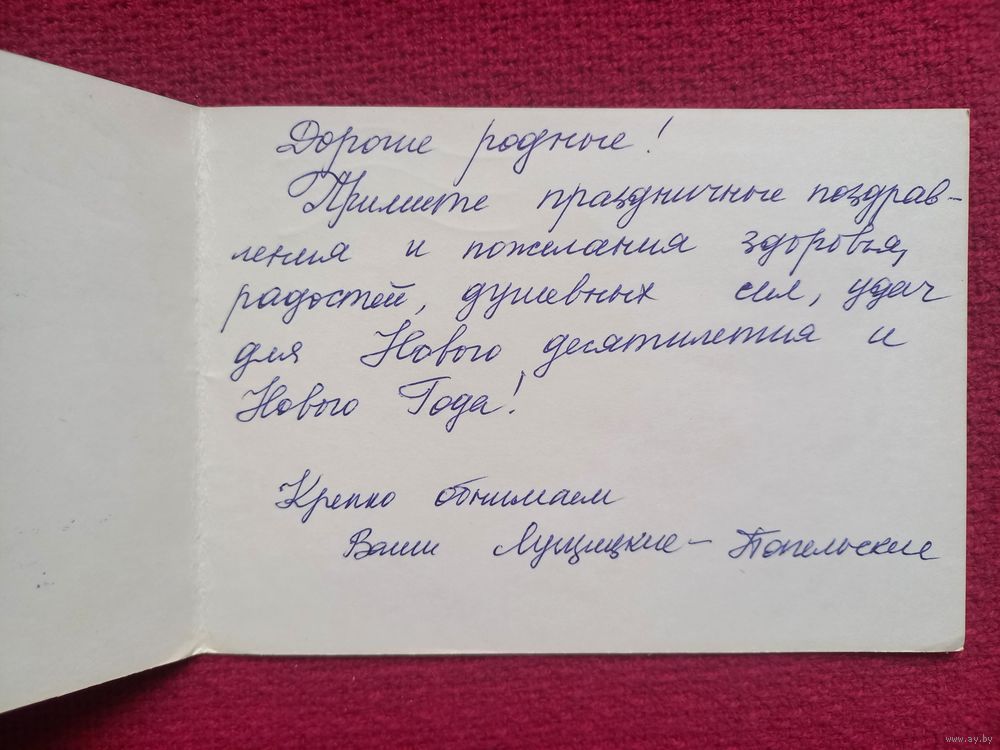 Дорогие родные!
Примите праздничные поздрав-
ления и пожелания здоровья,
радостей, душевных сил, удач
для Нового десятилетия и
Нового Года!
Крепко обнимаем
Ваши Лущицкие - Топельские
www.ay.by